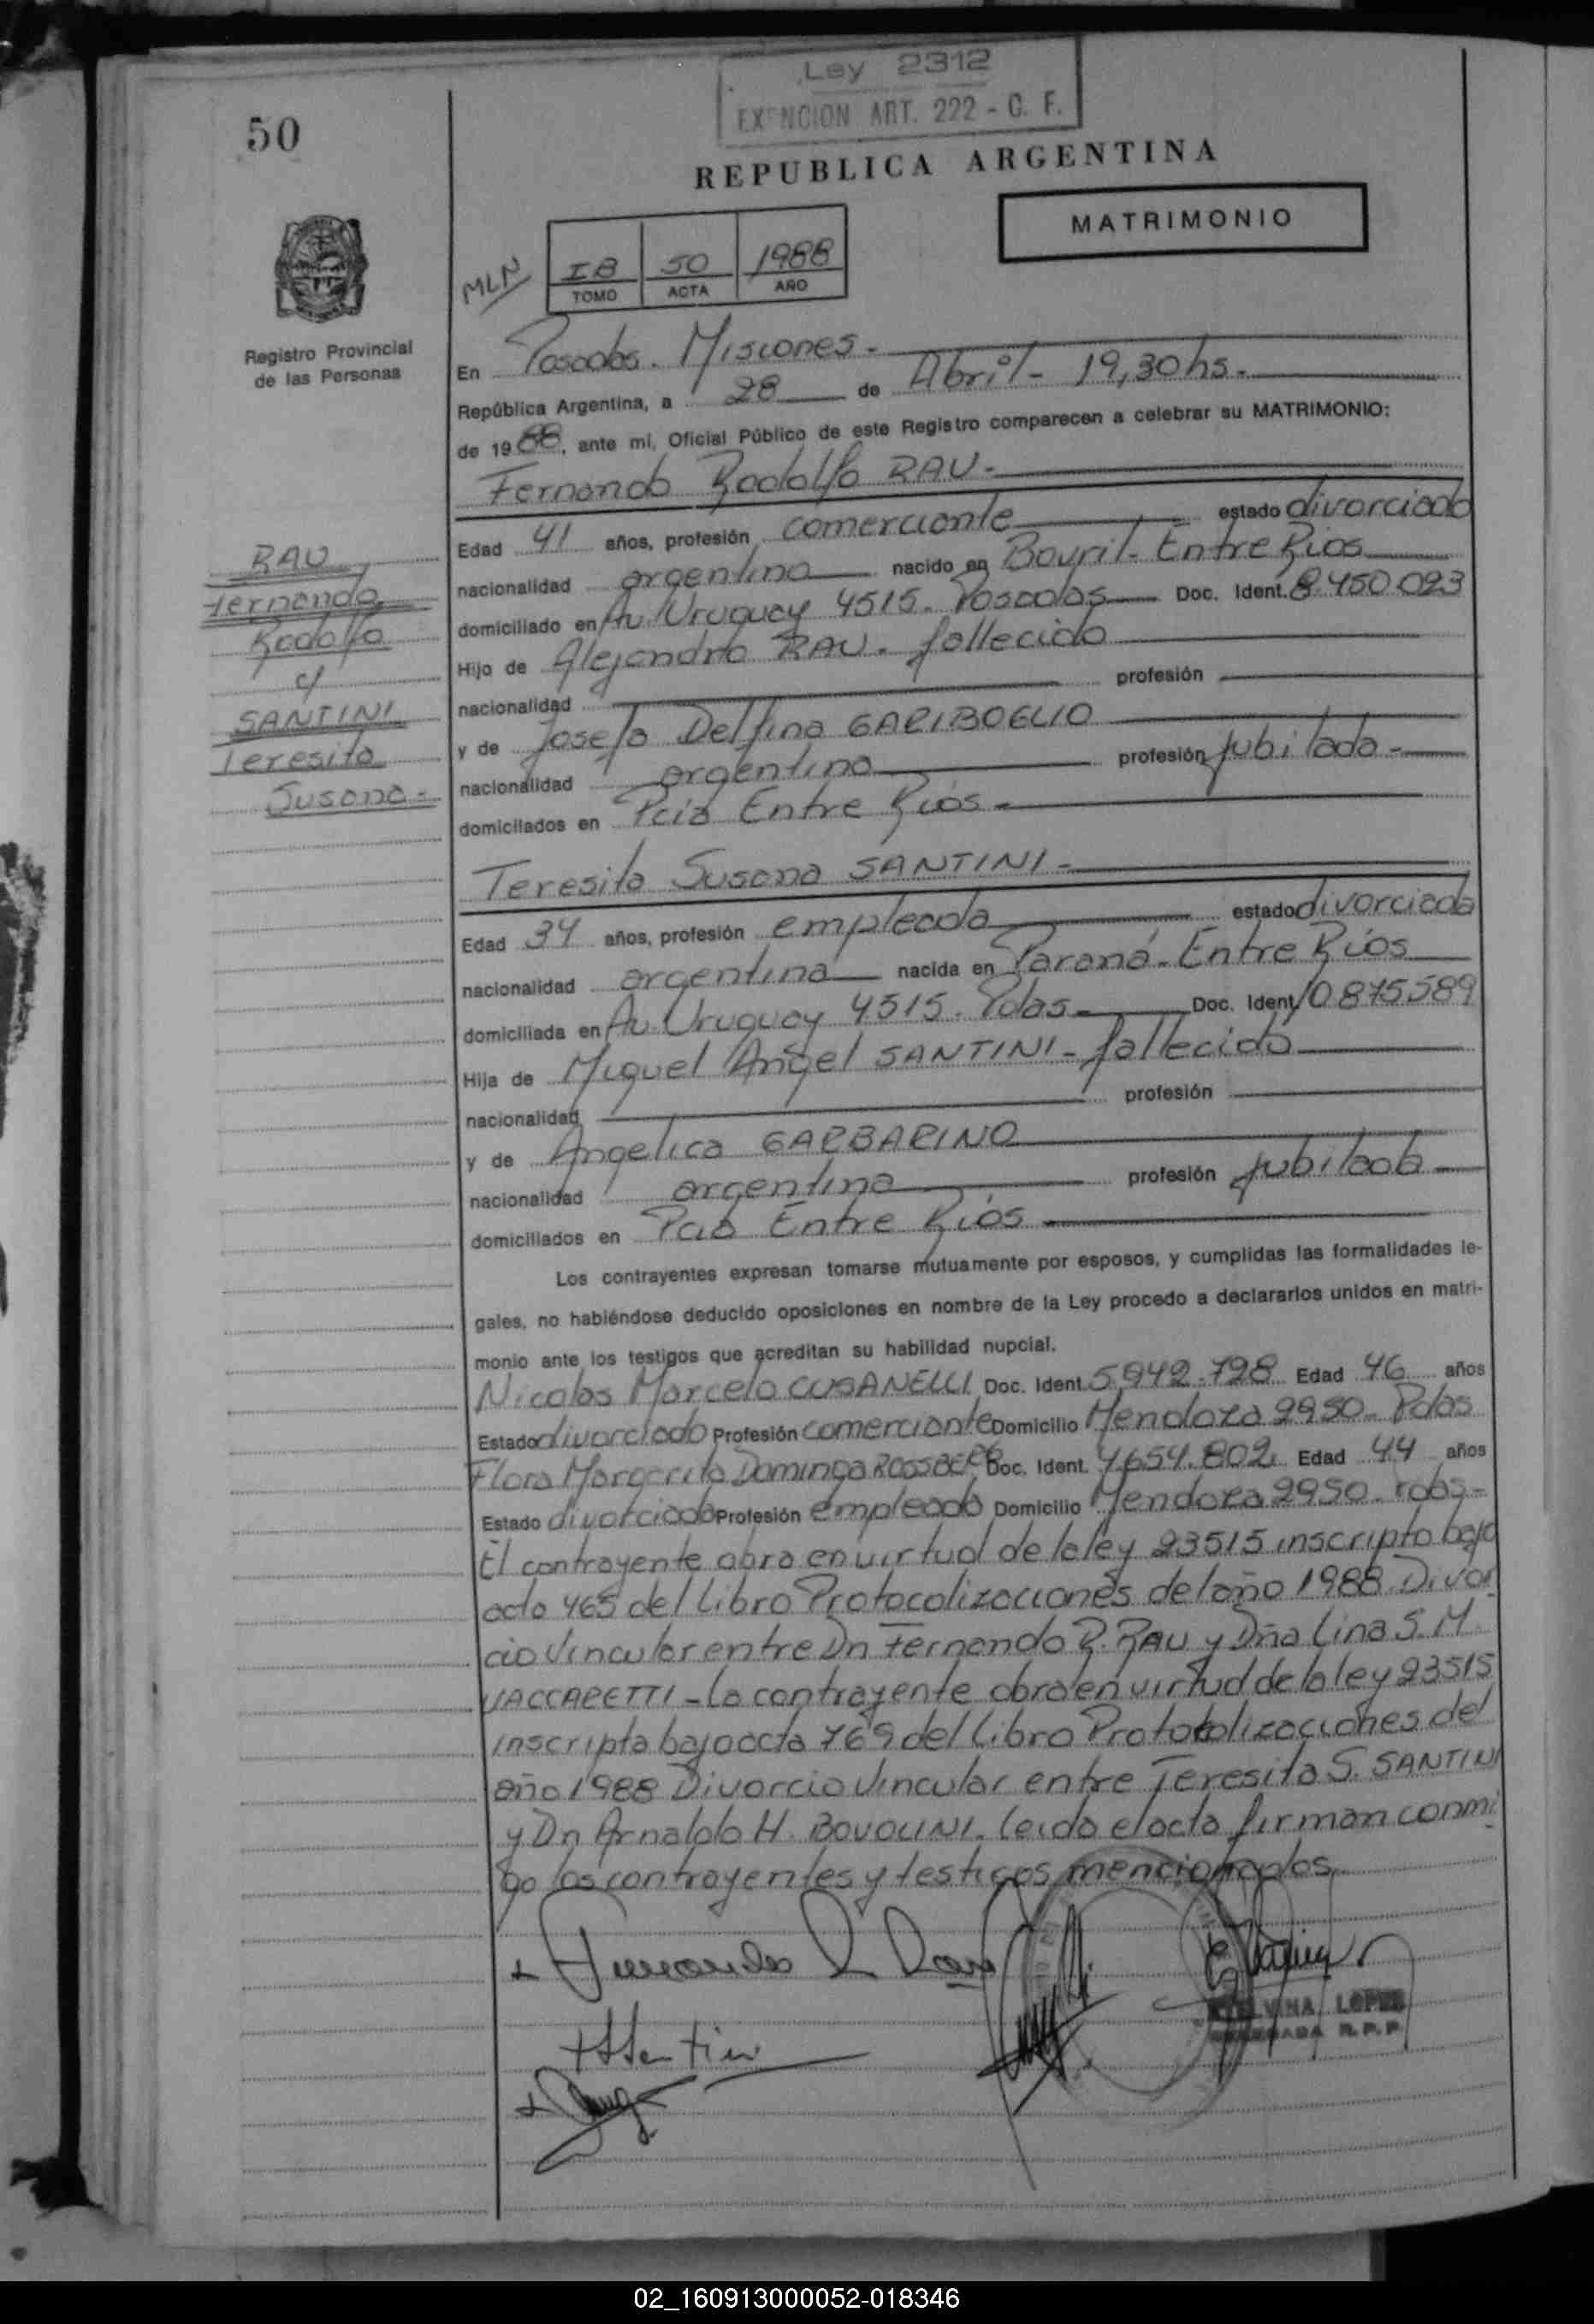 Ley 2312
EXENCION ART. 222 - C. F.
50
REPUBLICA ARGENTINA
MATRIMONIO
MLN
IB 50 1988
TOMO ACTA AÑO
Registro Provincial
de las Personas
En Posadas. Misiones.-
República Argentina, a 28 de Abril - 19,30hs.-
de 1988, ante mi, Oficial Público de este Registro comparecen a celebrar su MATRIMONIO:
Fernando Rodolfo RAU.-
Edad 41 años, profesión comerciante estado divorciado
nacionalidad argentina nacido en Bovril - Entre Rios
domiciliado en Av. Uruguay 4515. Posadas Doc. Ident. 8.450.023
Hijo de Alejandro RAU. fallecido
nacionalidad profesión
y de Josefa Delfina GARIBOGLIO
nacionalidad argentina profesión jubilada.-
domiciliados en Pcia Entre Rios.-
RAU
Fernando
Rodolfo
c/
SANTINI
Teresita
Susana.-
Teresita Susana SANTINI.-
Edad 34 años, profesión empleada estado divorciada
nacionalidad argentina nacida en Paraná - Entre Rios
domiciliada en Av. Uruguay 4515. Pdas.- Doc. Ident. 10.875.589
Hija de Miguel Angel SANTINI - fallecido
nacionalidad profesión
y de Angelica GARBARINO
nacionalidad argentina profesión jubilada
domiciliados en Pcia Entre Rios
Los contrayentes expresan tomarse mutuamente por esposos, y cumplidas las formalidades le-
gales, no habiéndose deducido oposiciones en nombre de la Ley procedo a declararlos unidos en matri-
monio ante los testigos que acreditan su habilidad nupcial.
Nicolas Marcelo CUSANELLI Doc. Ident. 5.942.728 Edad 46 años
Estado divorciado Profesión comerciante Domicilio Mendoza 2950 - Pdas
Flora Margarita Dominga ROSSBERG Doc. Ident. 4.654.802 Edad 44 años
Estado divorciada Profesión empleada Domicilio Mendoza 2950 - Pdas.-
El contrayente obra en virtud de la ley 23515 inscripto bajo
acta 465 del Libro Protocolizaciones del año 1988 Divor
cio Vincular entre Dn Fernando R. RAU y Dña Lina S. M.
VACCARETTI - La contrayente obra en virtud de la ley 23515
inscripta bajo acta 769 del Libro Protocolizaciones del
año 1988 Divorcio Vincular entre Teresita S. SANTINI
y Dn Arnaldo H. BOVOLINI. Leida el acta firman conmi
go los contrayentes y testigos mencionados.
LOPES
R.P.P
02_160913000052-018346